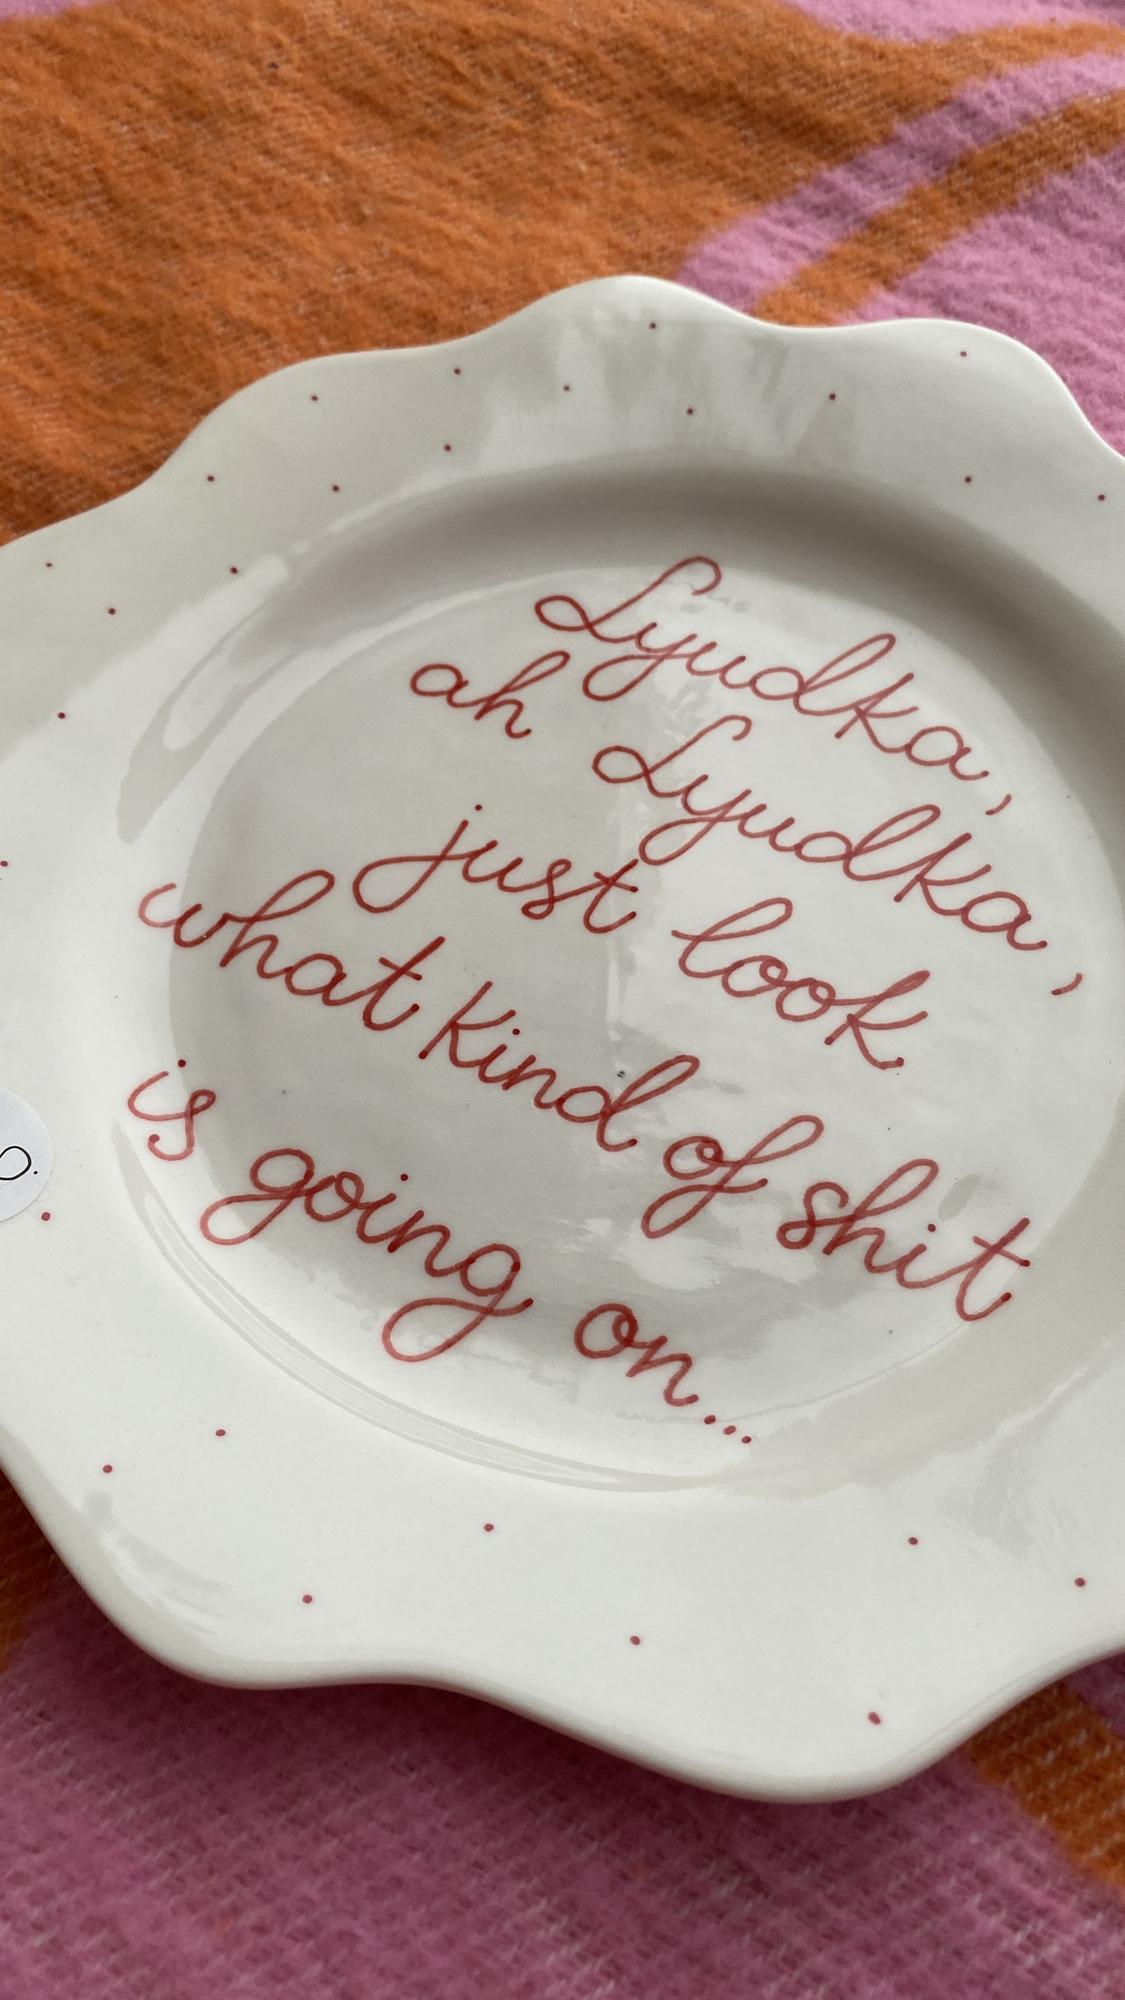 Lyudka,
ah Lyudka,
just look
what kind of shit
is going on...